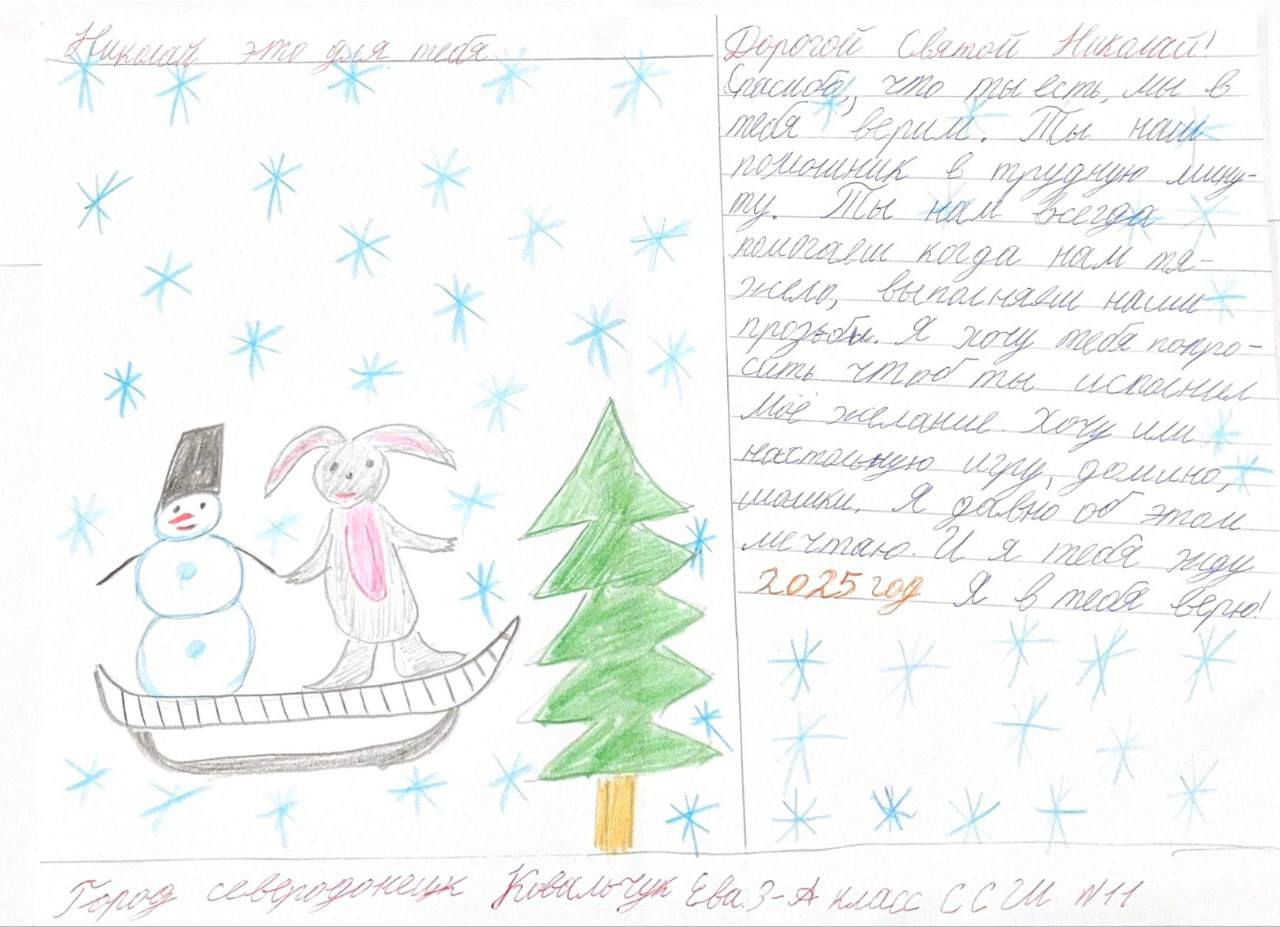 Николай это для тебя
Дорогой Святой Николай!
Спасибо, что ты есть, мы в
тебя верим. Ты наш
помошник в трудную мину-
ту. Ты нам всегда
помогаеш когда нам тя-
жело, выполняеш наши
прозьбы. Я хочу тебя попро-
сить чтоб ты исполнил
моё желание. Хочу или
настольную игру, домино,
шашки. Я давно об этом
мечтаю. И я тебя жду
2025 год Я в тебя верю!
Город северодонецк Ковальчук Ева 3-А класс ССШ №11